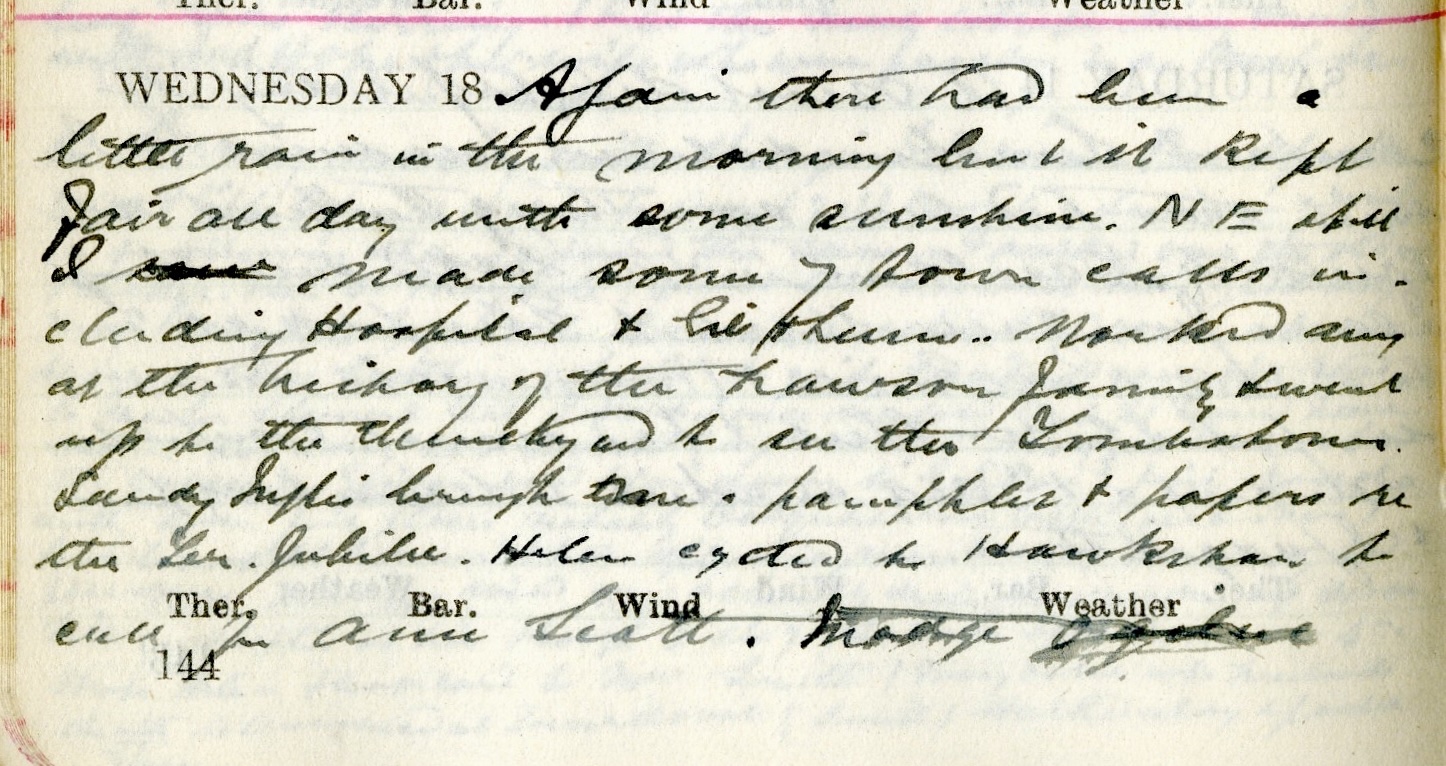 Ther. Bar. Wind Weather
WEDNESDAY 18 Again there had been a
little rain in the morning but it kept
fair all day with some sunshine. N E still
I made some of town calls in-
cluding Hospital & Worked away
at the history of the Lawson family & went
up to the Churchyard to see the Tombstones.
Sandy Inglis brought down a pamphlet & papers re
the Jubilee. Helen cycled to Hawkshaw to
Ther. Bar. Wind Weather
call for Ann Scott. Madge
144